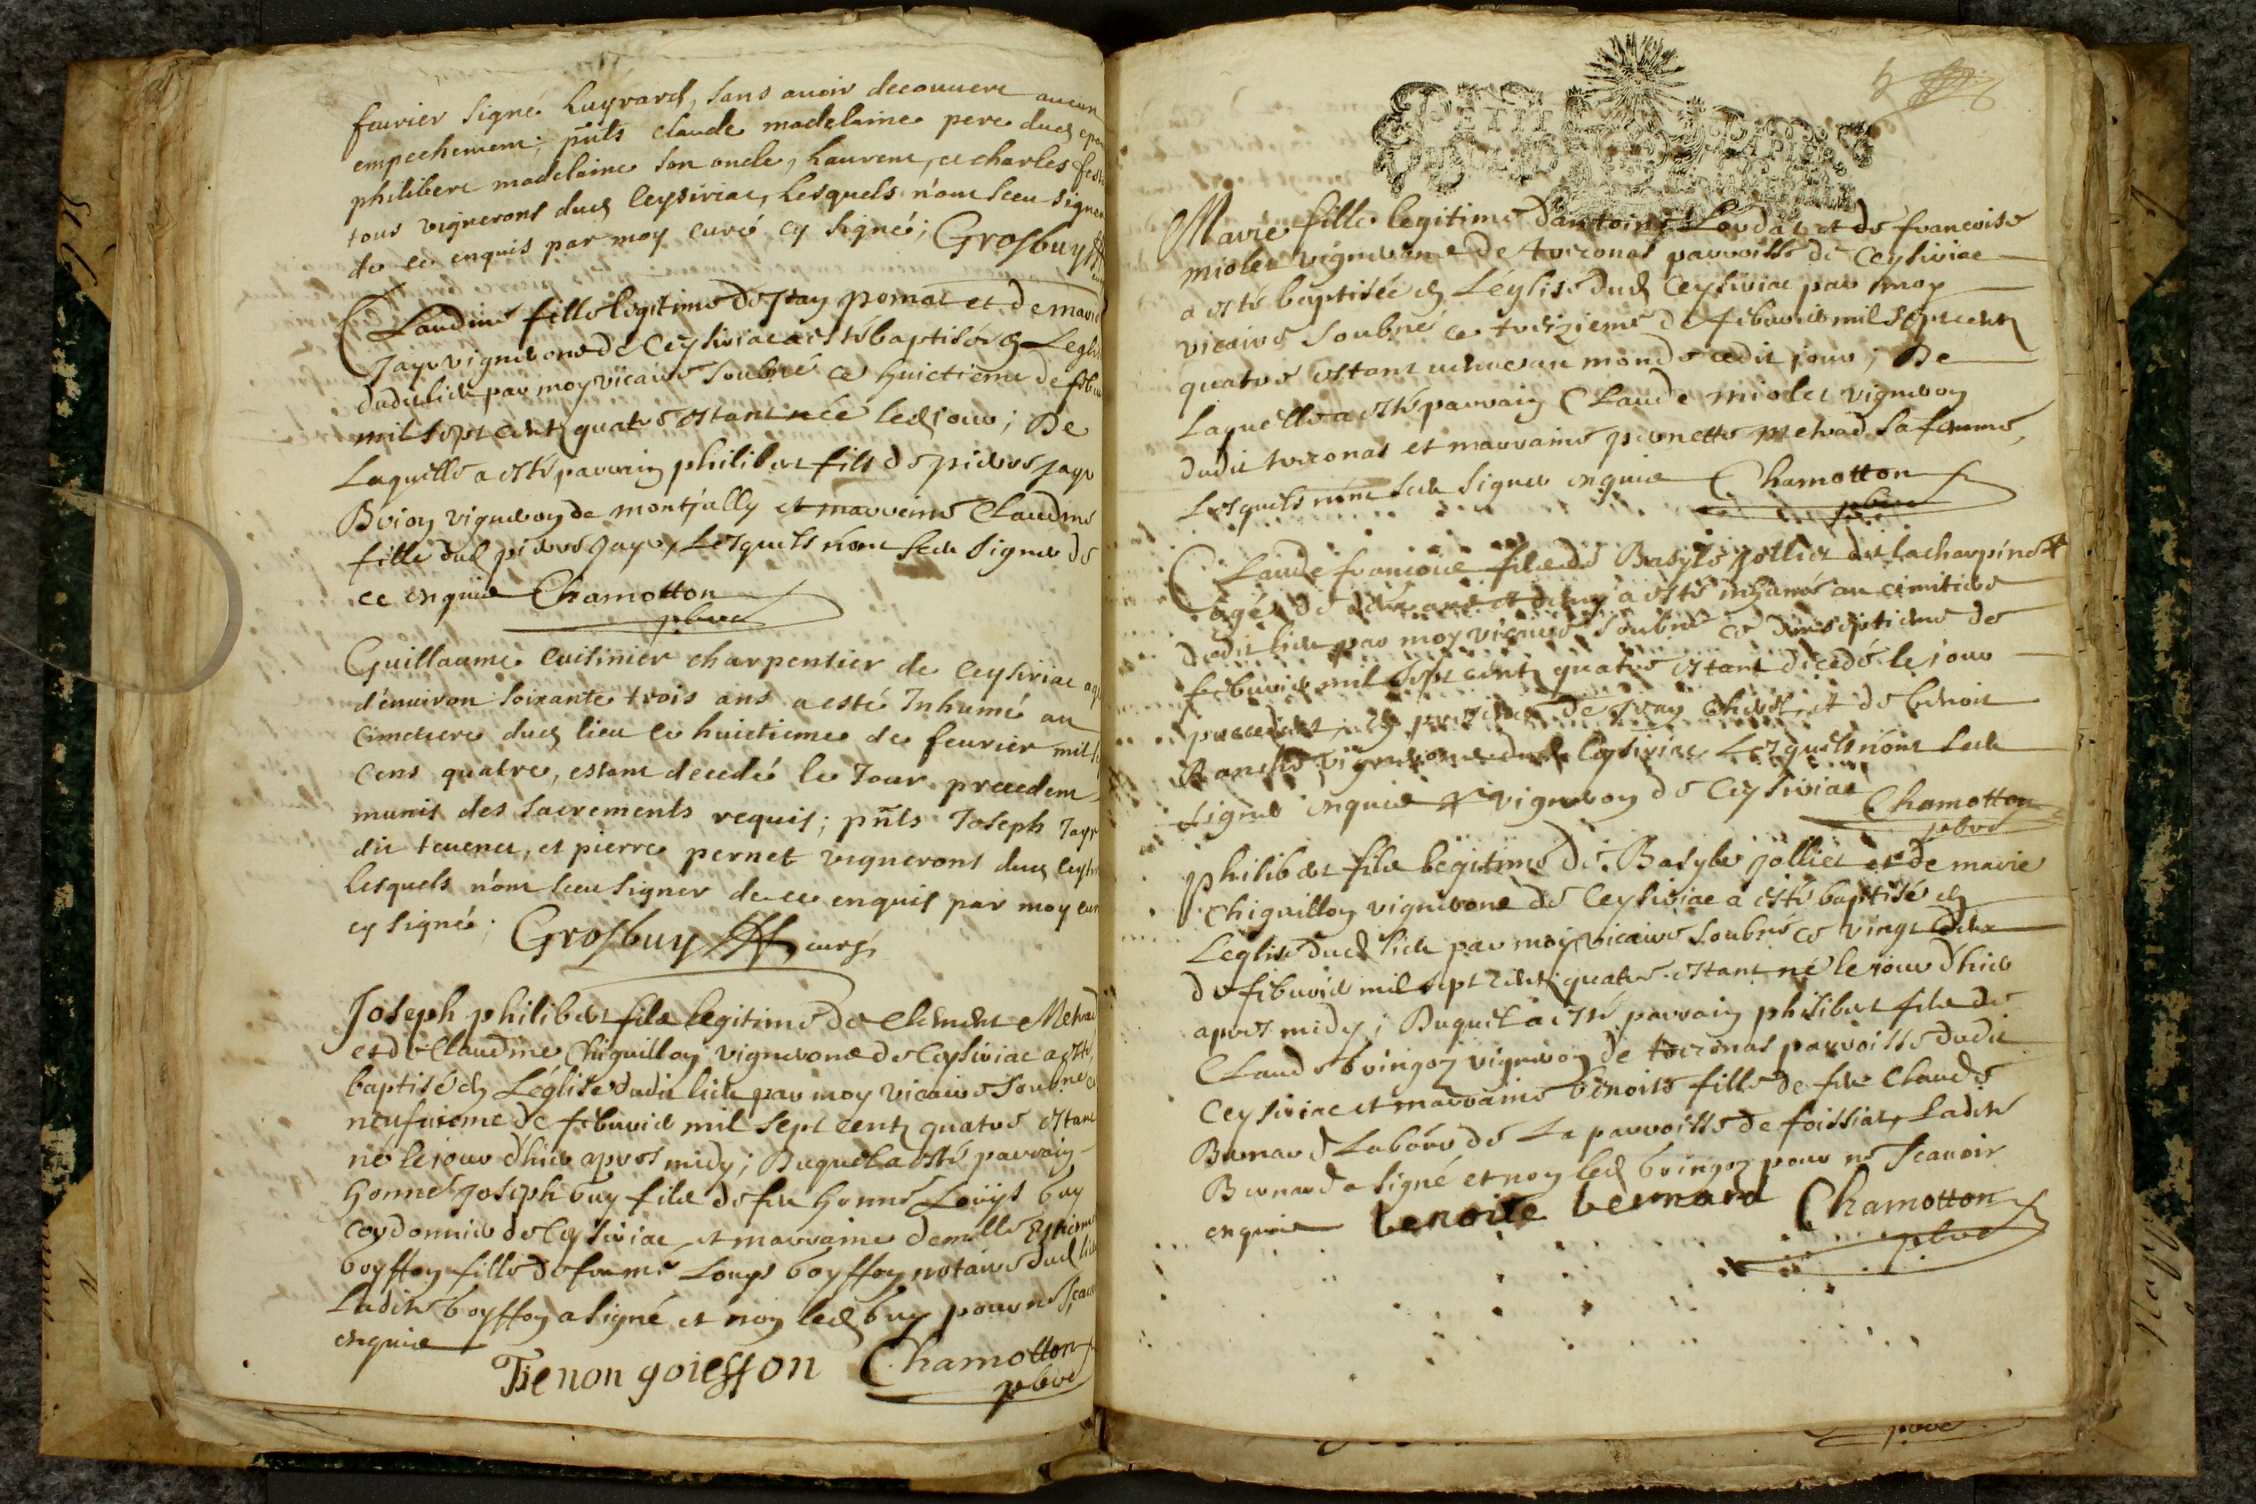 feurier signé Luyrard, sans auoir decouuert aucun
empechement; pnts claude madelaine pere dud
philibert madelaine son oncle, Laurent, et charles
tous vignerons dud ceysiriac, Lesquels n'ont sceu signer
de ce enquis par moy curé cy signé; Grosbuy
Claudine fille legitime de Jean pomat et de marie
Jayr vignerons de Ceysiriac a esté baptisée en Leglise
dudit lieu par moy vicaire soubné ce huictieme de
mil sept cent quatre estant née led jour; De
Laquelle a esté parrain philibert fils de pierre Jayr
Brion vigneron de montjully et marreine Claudine
fille dud pierre Jayr, Lesquels n'ont sceu signer de
ce enquis Chamotton
pbre
Guillaume Cuisinier charpentier de ceysiriac
d'enuiron soixante trois ans a esté Inhumé au
cimetiere dud lieu le huictieme de feurier mil
cens quatre, estant decedé le Jour precedent
munis des sacrements requis; pnts Joseph Jayr
dit teuenet, et pierre pernet vignerons dud
lesquels n'ont sceu signer de ce enquis par moy
cy signé; Grosbuy curé
Joseph philibert fils legitime de Clement
et de Claudine Chiquillon vignerons de Ceysiriac a esté
baptisé en Léglise dudit lieu par moy vicaire soubné
neufuieme de feburier mil sept cent quatre estant
né le jour d'hier apres midy; Duquel a esté parrain
honnes Joseph buy fils de feu honnes Loüys buy
cordonnier de Ceysiriac et marraine demlle
boysson fille de feu mr Louys boysson notaire dud lieu
Ladite boysson a signé et non led buy pour ne
enquis
Tienon goiesson Chamotton
pbre
Marie fille legitime d'antoine et de francoise
miolet vignerons de torconas parroisse de Ceysiriac
a esté baptisée en Léglise dud Ceysiriac par moy
vicaire soubné ce treizieme de feburier mil sept cent
quatre estant venue au monde cedit jour; De
Laquelle a esté parrain Claude miolet vigneron
dudit torconas et marraine pernette sa femme,
Lesquels n'ont sceu signer enquis Chamotton
pbre
Claude francois fils de Basyle jolliet dit lacharpine
agé de deux ans et demy a esté inhumé au cimitiere
dudit lieu par moy vicaire soubné ce dixseptieme de
feburier mil sept cent quatre estant decedé le jour
precedent, en presence de et de benoit
vignerons dud Ceysiriac Lesquels n'ont sceu
signer enquis vigneron de Ceysiriac Chamotton
pbre
Philibert fils legitime de Basyle jolliet et de marie
Chiquillon vignerons de Ceysiriac a esté baptisé en
Léglise dud lieu par moy vicaire soubné ce vingt deux
de feburier mil sept cent quatre estant né le jour d'hier
apres midy; Duquel a esté parrain philibert fils de
Claude bringoz vigneron de torconas parroisse dudit
Ceysiriac et marraine benoite fille de feu Claude
Bernard Labour de La parroisse de foissiat, Ladite
Bernard a signé et non led bringoz pour ne scauoir
enquis benoite bernard Chamotton
pbre